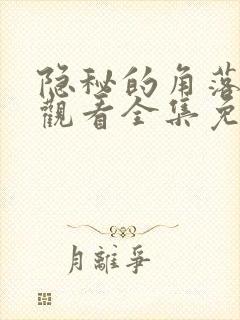 隐秘的角落
觀看全集免
月離爭